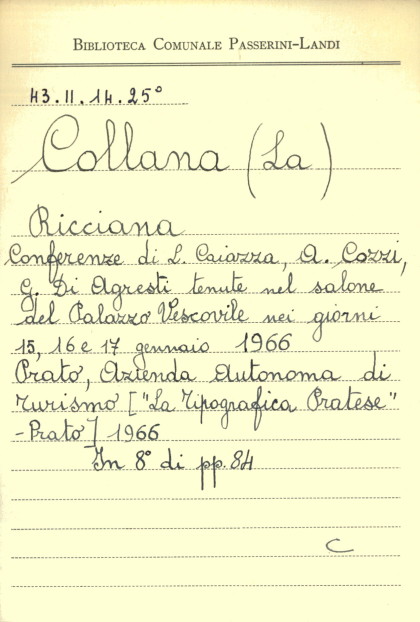 BIBLIOTECA COMUNALE PASSERINI-LANDI
43.II.14.25°
Collana (La)
Ricciana
Conferenze di L. Caiazza, A. Cozzi,
G. Di Agresti tenute nel salone
del Palazzo Vescovile nei giorni
15, 16 e 17 gennaio 1966
Prato, Azienda Autonoma di
Turismo ["La Tipografica Pratese"
-Prato] 1966
In 8° di pp. 84
C